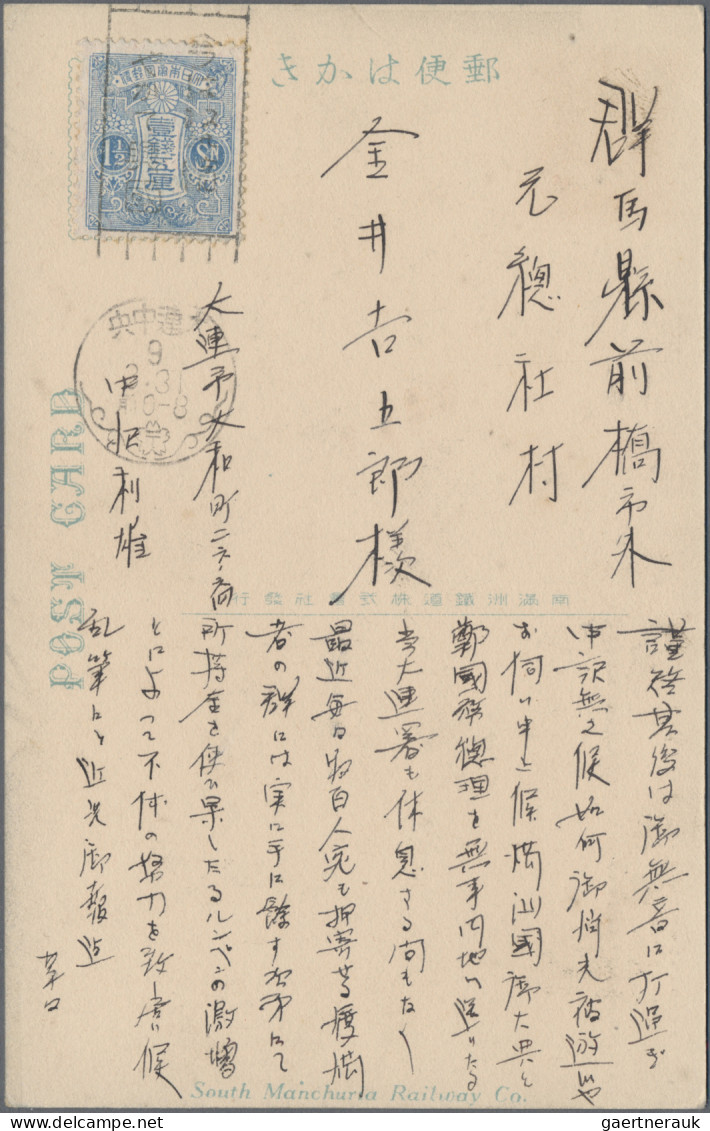 郵便はかき
群馬縣前橋市外
元總社村
金井吉五郎様
大日本帝國郵便
壹錢五厘
1½ Sn
大連中央
9
POST CARD
南滿洲鐵道株式會社發行
謹啓其後は御無音に打過ぎ
申訳無之候如何御消光被遊候や
お伺い申上候満洲國御大典と
鄭國務總理も無事内地へ送りたる
当大連署も休息する間もなく
最近毎日数百人宛も押寄せる渡満
者の群には実に手に餘す次第にて
所持金を使ひ果したるルンペンの激増
とによって不休の努力を致居候
乱筆にて近況御報迄
草々
South Manchuria Railway Co.
gaertnerauk